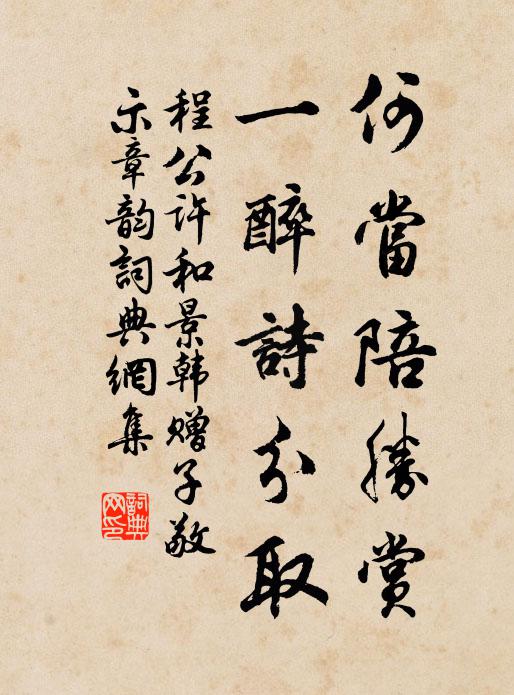 何當陪勝賞
一醉詩分取
程公許和景韩赠子敬
示章韵詞典網集
詞典
网印